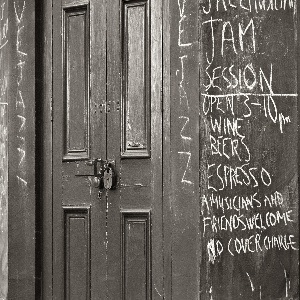 JAM
SESSION
OPEN 3-10pm
WINE
BEERS
ESPRESSO
MUSICIANS AND
FRIENDS WELCOME
NO COVER CHARGE